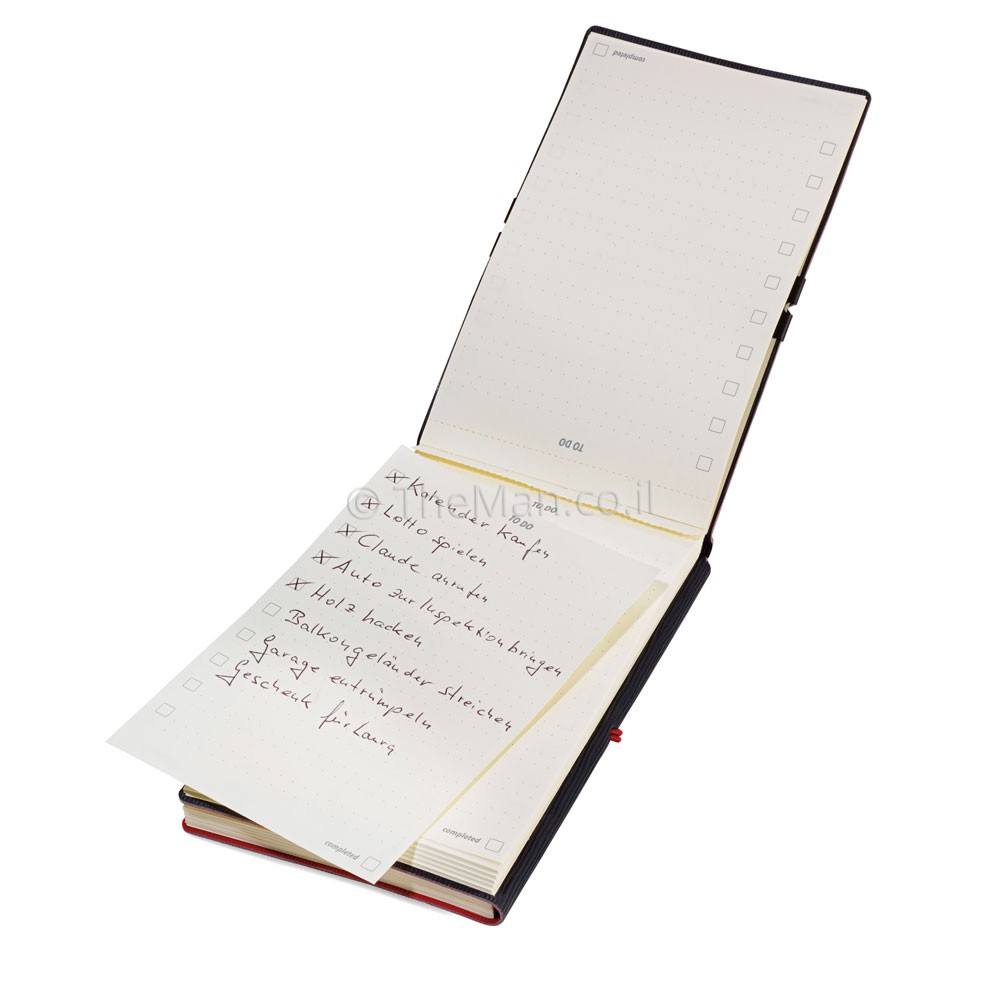 completed
TO DO
© TheMan.co.il
TO DO
TO DO
Kalender kaufen
Lotto spielen
Claude anrufen
Auto zur Inspektion bringen
Holz hacken
Balkongeländer streichen
Garage entrümpeln
Geschenk für Laura
completed
completed